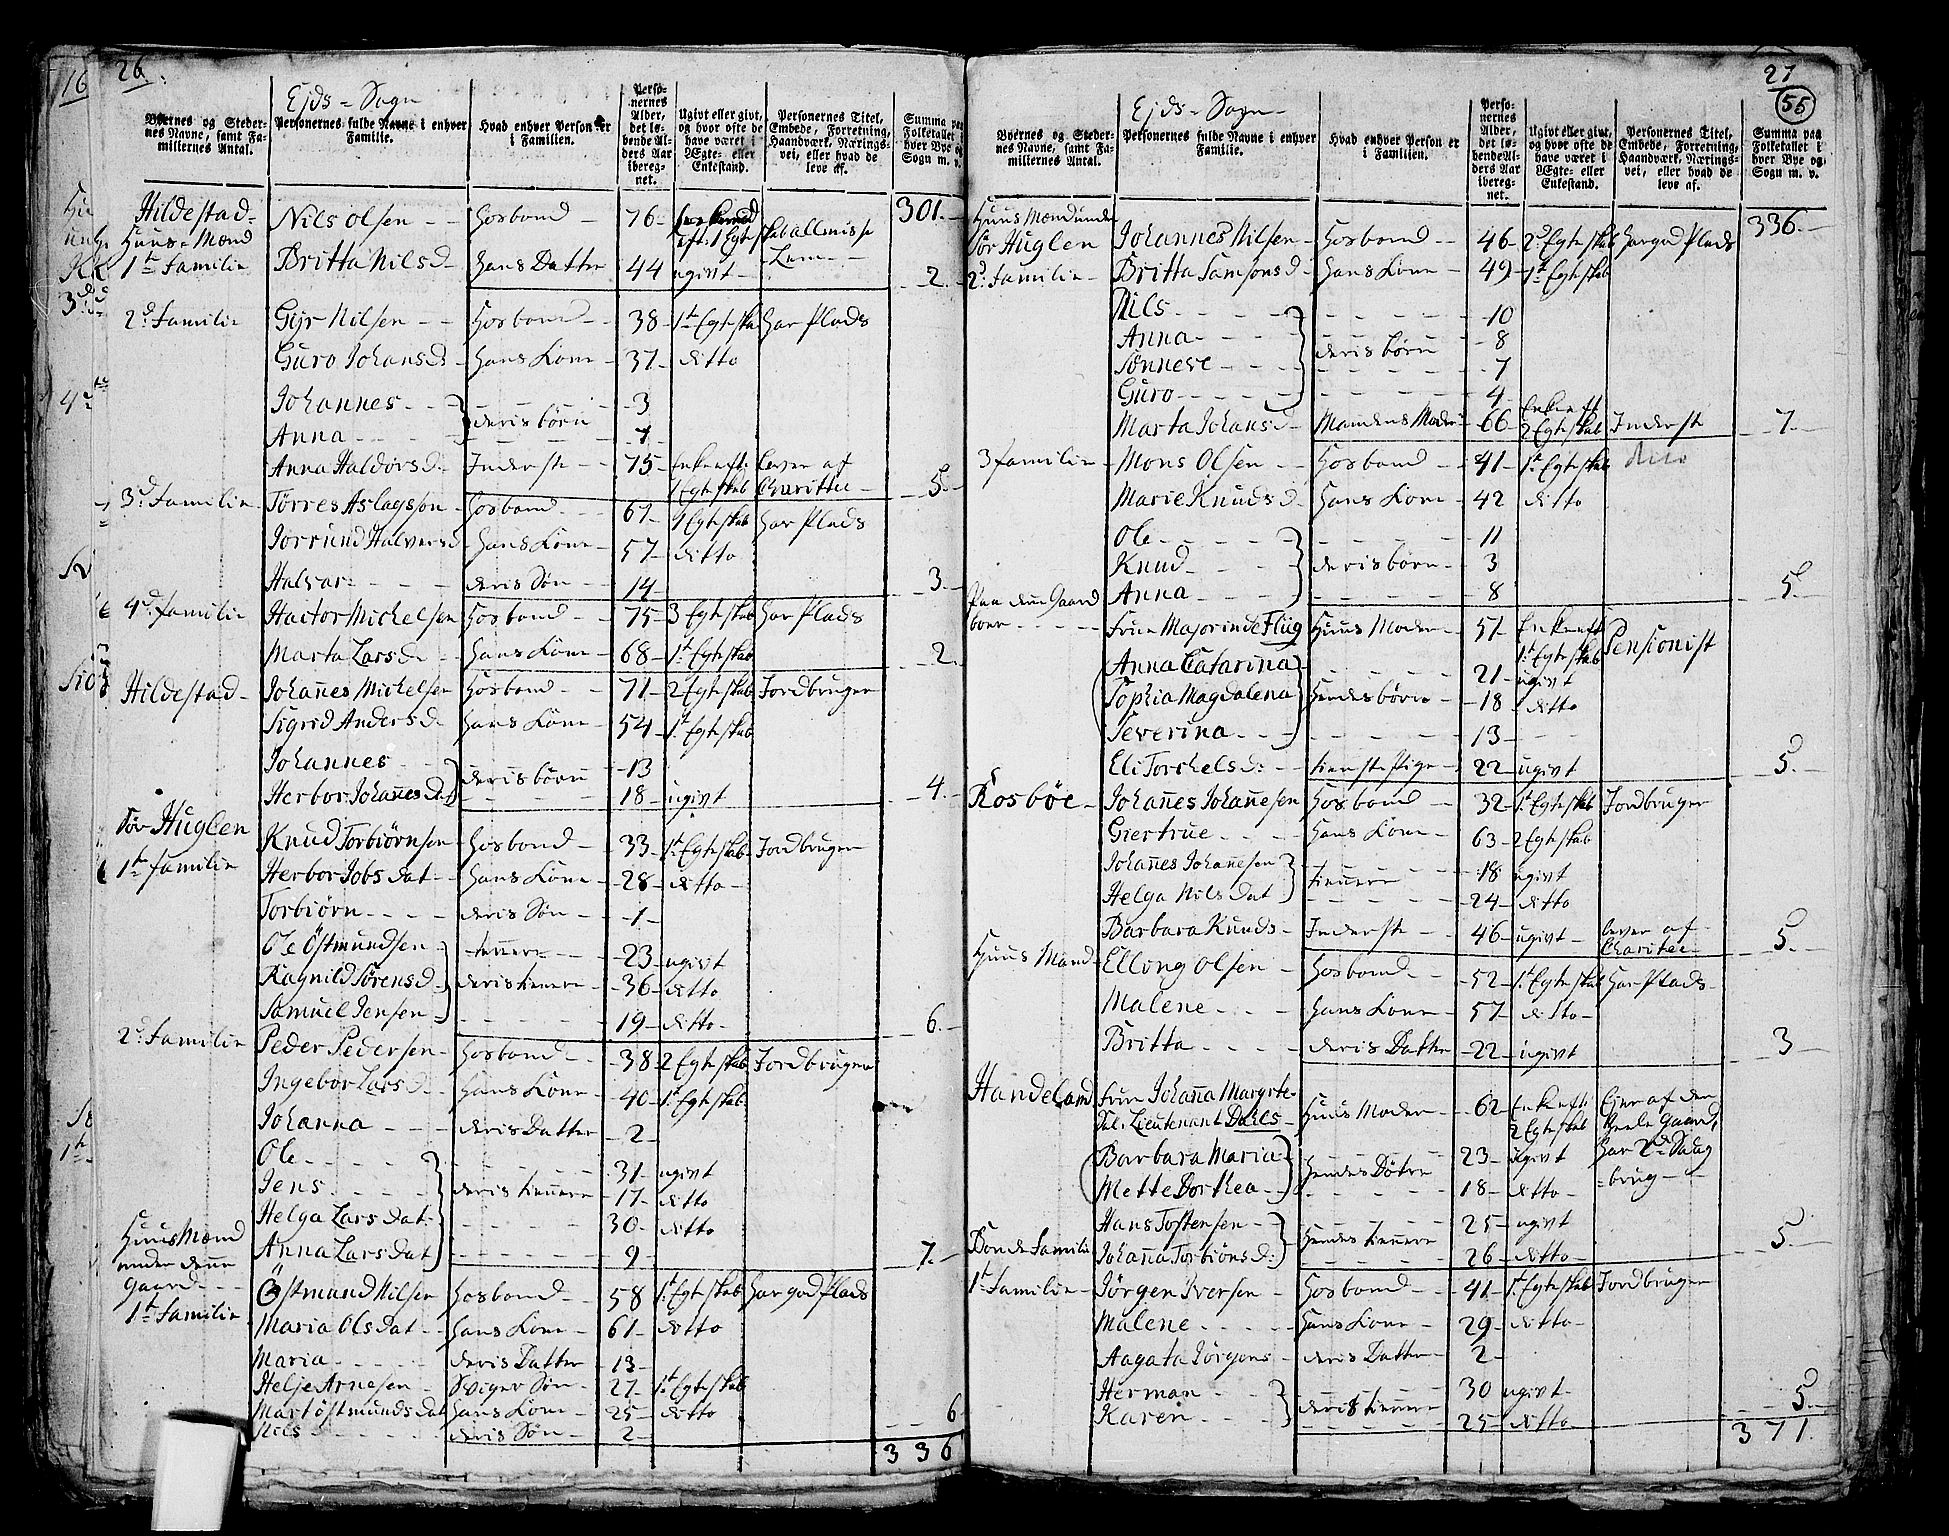 26.
Ejds = Sogn
Byernes og Steder-
nes Navne, samt Fa-
miliernes Antal.
Personernes fulde Navne i enhver
Familie.
Hvad enhver Person er
i Familien.
Perso-
nernes
Alder,
det lø-
bende Al-
ders Aar
iberegnet.
Ugivt eller givt,
og hvor ofte de
have været i
Ægte- eller
Enkestand.
Personernes Titel,
Embede, Forretning,
Haandværk, Nærings-
vei, eller hvad de
leve af.
Summa paa
Folketallet i
hver Bye og
Sogn m. v.
301.
Hildestad Nils Olsen Hosbond 76
Huus-Mænd
1te Familie Britta Nilsd. Hans Datter 44 ugivt 2.
2d. Familie Gijr Nilsen Hosbond 38 1te Egteskab Har Plads
Guro Johansd. Hans Kone 37 ditto
Johannes 3
deris børn
Anna 1
Anna Haldorsd. Inderste 75 Enke eft. 1 Egteskab lever af Charitee 5.
3d. Familie Torres Aslagsson Hosbond 67 1 Egteskab Har Plads
Jorrund Halversd. Hans Kone 57 ditto
Halvar deris Søn 14 3.
4d. familie Hactor Michelsen Hosbond 75 3 Egteskab Har Plads
Marta Larsd. Hans Kone 68 1t. Egteskab 2.
Hildestad Johañes Michelsen Hosbond 71 2 Egteskab Jordbruger
Sigrid Andersd. Hans Kone 54 1t. Egteskab
Johannes deris børn 13
Herbor Johañesd. 18 ugivt 4.
Sør Huglen
1te familie Knud Torbiörnsen Hosbond 33 1t. Egteskab Jordbruger
Herbor Jobsdat Hans Kone 28 ditto
Torbiörn deris Søn 1
Ole Östmundsen tienere 23 ugivt
Ragnild Sörensd. deris tienere 36 ditto
Samuel Jensen 19 ditto 6.
2d. Familie Peder Pedersen Hosbond 38 2 Egteskab Jordbruger
Ingebor Larsd. Hans Kone 40 1t. Egteskab
Johanna deris Datter 2
Ole 31 ugivt
Jens deris tienere 17 ditto
Helga Larsdat 30 ditto
Anna Larsdat 9 7.
Huus Mænd
under denne
Gaard
1te Familie Östmund Nilsen Hosbond 58 1t. Egteskab Har god Plads
Maria Olsdat Hans Kone 61 ditto
Maria deris Datter 13
Helje Arnesen Sviger Søn 27 1t. Egteskab
Mart Östmundsdat Hans Kone 25 ditto
Nils deris Søn 2 6
336
27
55
Ejds = Sogn
Byernes og Steder-
nes Navne, samt Fa-
miliernes Antal.
Personernes fulde Navne i enhver
Familie.
Hvad enhver Person er
i Familien.
Perso-
nernes
Alder,
det lø-
bende Al-
ders Aar
iberegnet.
Ugivt eller givt,
og hvor ofte de
have været i
Ægte- eller
Enkestand.
Personernes Titel,
Embede, Forretning,
Haandværk, Nærings-
vei, eller hvad de
leve af.
Summa paa
Folketallet i
hver Bye og
Sogn m. v.
336.
Huus Mænd under
Sör Huglen Johannes Nilsen Hosbond 46 2d. Egteskab Har god Plads
2d. Familie Britta Samsonsd. Hans Kone 49 1t. Egteskab
Nils 10
Anna 8
deris børn
Sønneve 7
Guro 4
Marta Johansd. Mandens Moder 66 Enke eft. 2 Egteskab Inderste 7.
3 familie Mons Olsen Hosbond 41 1t. Egteskab
Marie Knudsd. Hans Kone 42 ditto
Ole 11
Knud deris børn 3
Anna 8 5.
Paa denne Gaard
boer Frue Majorinde Flüg Huus Moder 51 Enke eft. 1t. Egteskab Pensionist
Anna Catarina 21 ugivt
Sophia Magdalena Hendes børn 18 ditto
Severina 13
Eli Torchelsd. tieneste Pige 22 ugivt 5.
Rosböe Johañes Johañesen Hosbond 32 1t. Egteskab Jordbruger
Giertrue Hans Kone 63 2 Egteskab
Johañes Johañesen 18 ugivt
tienere
Helga Nilsdat 24 ditto
Barbara Knuds Inderste 46 ugivt lever af Charitee 5.
Huus Mand Ellong Olsen Hosbond 52 1t. Egteskab Har Plads
Malene Hans Kone 57 ditto
Britta deris Datter 22 ugivt 3
Handeland Frue Johaña Margrte
Sal. Lieutenant Dahls Huus Moder 62 Enke eft. 2 Egteskab Ejer af den heele Gaard, har 2de Saug=brug
Barbara Maria 23 ugivt
Hendes Døtre
Mette Dorthea 18 ditto
Hans Tostensen 25 ugivt
Hendes tienere
Johaña Torbiönsd. 26 ditto 5.
Bonde Familie
1t. Familie Jörgen Iversen Hosbond 41 1t. Egteskab Jordbruger
Malene Hans Kone 29 ditto
Aagata Jörgens deris Datter 2
Herman 30 ugivt
deris tienere
Karen 25 ditto 5.
371.